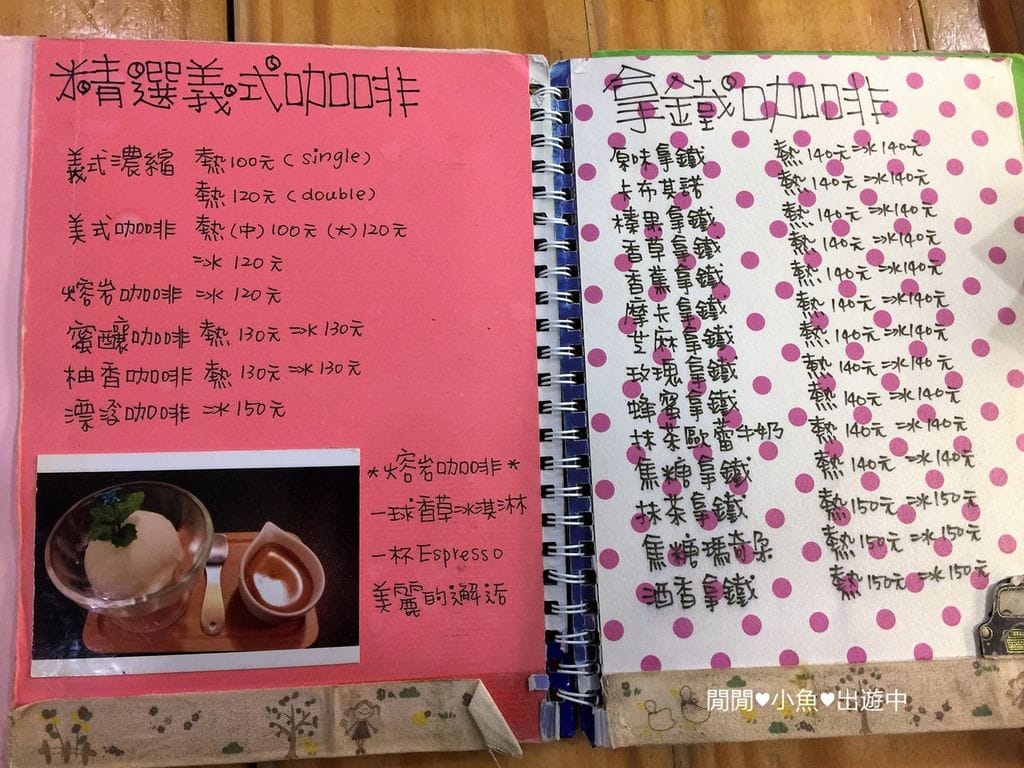 精選義式咖啡
義式濃縮 熱100元(single)
熱120元(double)
美式咖啡 熱(中)100元(大)120元
冰 120元
熔岩咖啡 冰 120元
蜜釀咖啡 熱 130元 冰 130元
柚香咖啡 熱 130元 冰 130元
漂浮咖啡 冰 150元
*熔岩咖啡*
一球香草冰淇淋
一杯Espresso
美麗的邂逅
拿鐵咖啡
原味拿鐵 熱140元 冰140元
卡布其諾 熱140元 冰140元
榛果拿鐵 熱140元 冰140元
香草拿鐵 熱140元 冰140元
香蕉拿鐵 熱140元 冰140元
摩卡拿鐵 熱140元 冰140元
芝麻拿鐵 熱140元 冰140元
玫瑰拿鐵 熱140元 冰140元
蜂蜜拿鐵 熱140元 冰140元
抹茶歐蕾牛奶 熱140元 冰140元
焦糖拿鐵 熱140元 冰140元
抹茶拿鐵 熱150元 冰150元
焦糖瑪奇朵 熱150元 冰150元
酒香拿鐵 熱150元 冰150元
閒閒♥小魚♥出遊中